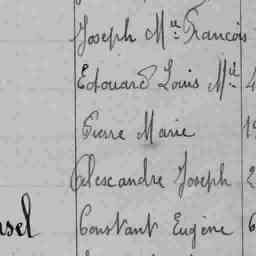 Joseph Mie François
Edouard Louis Mie 4
Pierre Marie 19
Alescandre Joseph 2
nsel Constant Eugène 6